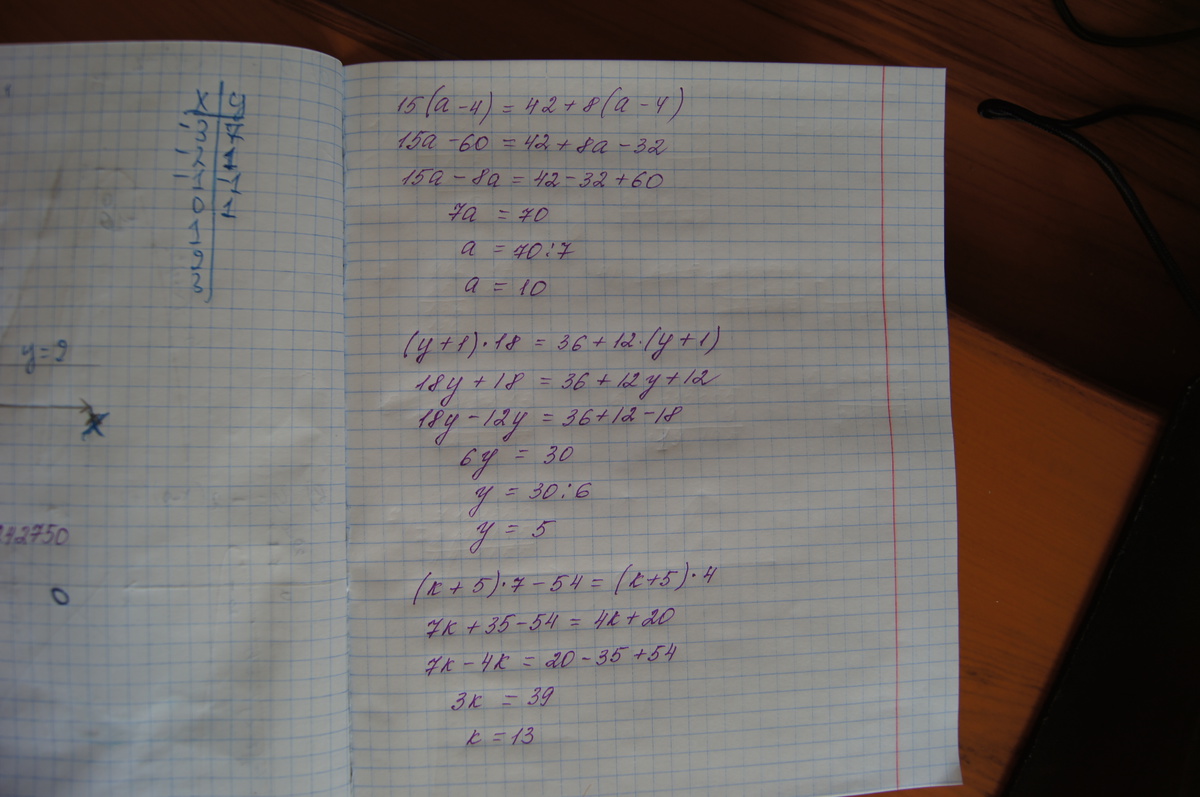 y=9
242750
0
15(a-4) = 42+8(a-4)
15a-60 = 42+8a-32
15a-8a = 42-32+60
7a = 70
a = 70:7
a = 10
(y+1)·18 = 36+12·(y+1)
18y+18 = 36+12y+12
18y-12y = 36+12-18
6y = 30
y = 30:6
y = 5
(k+5)·7-54 = (k+5)·4
7k+35-54 = 4k+20
7k-4k = 20-35+54
3k = 39
k = 13